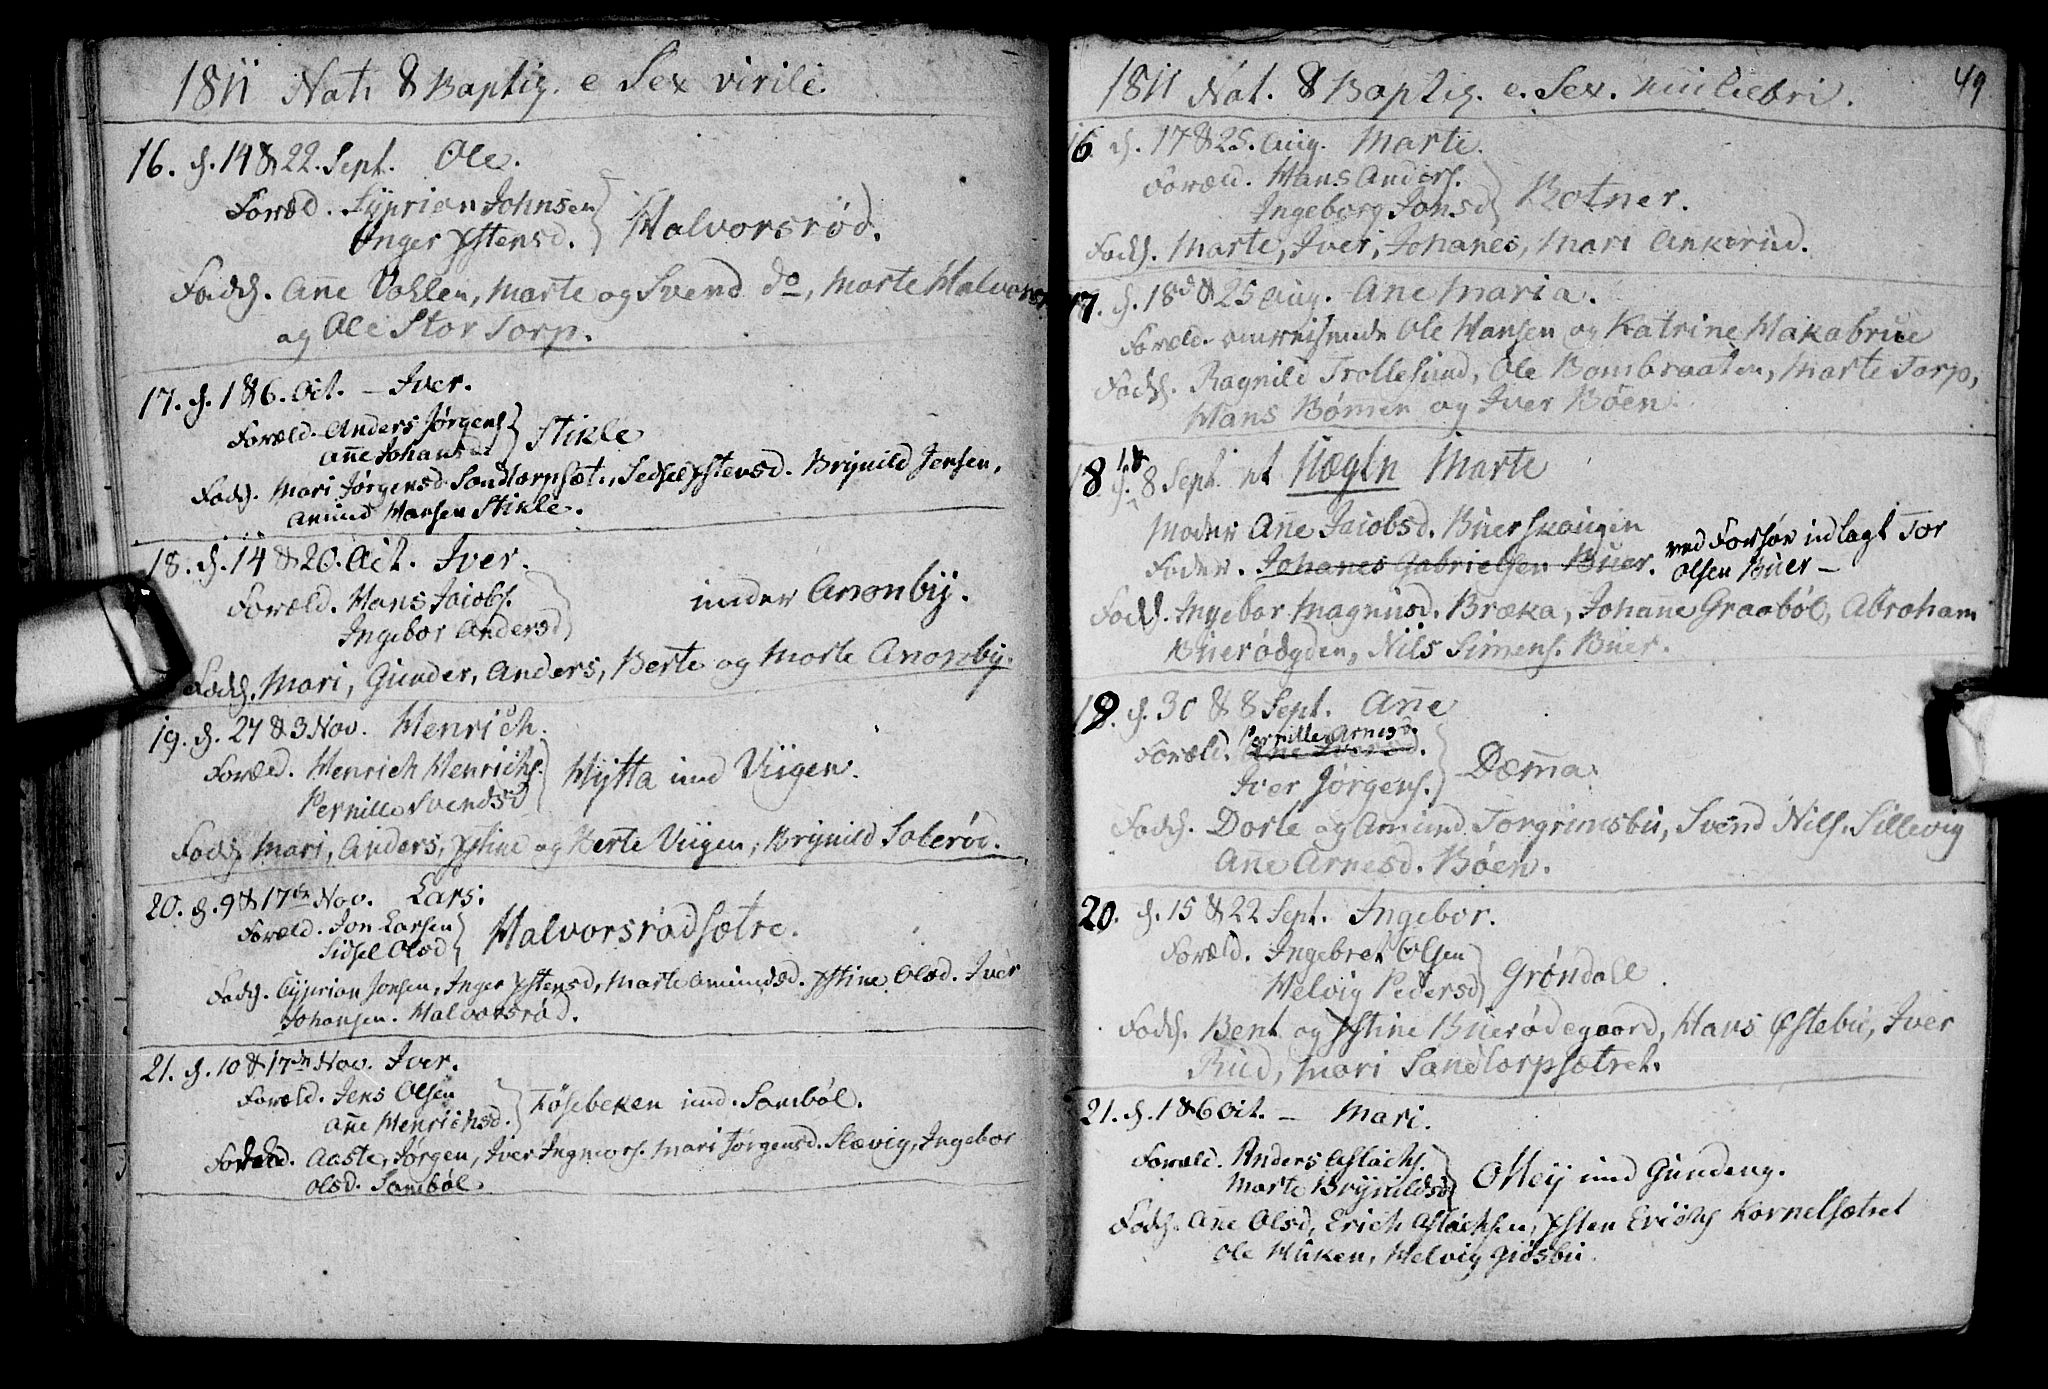 1811 Nati & Baptiz. e Sex virili.
16. d. 14 & 22. Sept. Ole.
Foræld. Syprian Johnsen
Inger Xstensd. } Halvorsrød.
Fadd. Añe Dahlen, Marte og Svend do, Marte Halvorsr.
og Ole Stor Torp.
17. d. 1 & 6. Oct. – Iver.
Foræld. Anders Jørgens.
Añe Johansd } Stikle
Fadd. Mari Jørgensd. Sandtorpsæt., Sedsel Xstensd. Brynild Jensen,
Amund Hansen Stikle.
18. d. 14 & 20. Oct. Iver.
Foræld. Hans Jacobs.
Ingebor Andersd } under Anonby.
Fadd. Mari, Gunder, Anders, Berte og Marte Anonby.
19. d. 27 & 3 Nov. Henrich.
Foræld. Henrich Henrichs.
Pernille Svendsd } Hytta und Viigen.
Fadd. Mari, Anders, Xstine og Berte Viigen, Brynild Solerød.
20. d. 9 & 17de Nov. Lars.
Foræld. Jon Larsen
Sidsel Olsd } Halvorsrødsætre.
Fadd. Cyprian Jonsen, Inger Xstensd, Marte Amundsd. Xstine Olsd. Iver
Johansen. Halvorsrød.
21. d. 10 & 17de Nov. Iver.
Foræld. Jens Olsen
Añe Henrichsd. } Køsebeken und. Sambøl.
Aaste, Jørgen, Iver Ingvors. Mari Jørgensd. Slævig, Ingebor
Olsd. Sambøl.
1811 Nat. & Baptiz. e. Sex. muliebri.
49
16. d. 17 & 25. Aug. Marte.
Foræld. Hans Anders.
Ingeborg Jonsd } Botner.
Fadd. Marte, Iver, Johanes, Mari Ankerud.
17. d. 18de & 25 Aug. Ane Maria.
Foræld. omreisende Ole Hansen og Katrine Makabrue
Fadd. Ragnild Trollesund, Ole Bombraaten, Marte Torp,
Hans Bømen og Iver Bøen.
18 d. 1 & 8 Sept. et Uægte Marte
Moder Añe Jacobsd. Buerskougen
Fader. Johanes Gabrielsen Buer. ved Forhør udlagt Tor
Olsen Buer –
Fadd. Ingebor Magnusd. Bræka, Johañe Graabøl, Abraham
Buerødgden, Nils Simens. Buer.
19. d. 30 & 8 Sept. Añe
Pernille Arnesd.
Foræld. Ane Iversd.
Iver Jørgens. } Dæm̃a.
Fadd. Dorte og Amund Torgrimsbu, Svend Nils. Sillevig
Añe Arnesd. Bøen.
20. d. 15 & 22 Sept. Ingebor.
Foræld. Ingebret Olsen
Helvig Pedersd } Grøndall.
Fadd. Bent og Xstine Buerødegaard, Hans Østebu, Iver
Rud, Mari Sandtorpsætret.
21. d. 1 & 6 Oct. – Mari.
Foræld. Anders Aslachs.
Marte Brynildsd } Otley und Gundeng.
Fadd. Añe Olsd, Erich Aslachsen, Xsten Erichs Kornelsætret
Ole Huken, Helvig Giøsbu.